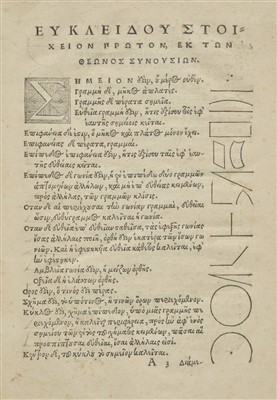 ΕΥΚΛΕΙΔΟΥ ΣΤΟΙ-
ΧΕΙΟΝ ΠΡΩΤΟΝ, ΕΚ ΤΩΝ
ΘΕΩΝΟΣ ΣΥΝΟΥΣΙΩΝ.
ΣΗΜΕΙΟΝ ὅϛιν, οὗ μέρος οὐδέν.
γραμμὴ δὲ, μῆκος ἀπλατὲς.
Γραμμῆς δὲ πέρατα, σημεῖα.
Εὐθεῖα γραμμή ὅϛιν, ἥτις ἐξίσου τοῖς ἐφ'
ἑαυτῆς σημείοις κεῖται.
Επιφάνεια δέ ὅϛιν, ὃ μῆκος καὶ πλάτος μόνον ἔχει.
Επιφανείας δὲ πέρατα, γραμμαί.
Επίπεδος ἐπιφάνειά ὅϛιν, ἥτις ἐξίσου ταῖς ἐφ' ἑαυ-
τῆς εὐθείαις κεῖται.
Επίπεδος δὲ γωνία ὅϛιν, ἡ ἐν ἐπιπέδῳ δύο γραμμῶν
ἁπτομένων ἀλλήλων, καὶ μὴ ἐπ' εὐθείας κειμένων,
πρὸς ἀλλήλας, τῶν γραμμῶν κλίσις.
Οταν δὲ αἱ περιέχουσαι τὴν γωνίαν γραμμαὶ, εὐθεῖαι
ὦσιν, εὐθύγραμμος καλεῖται ἡ γωνία.
Οταν δὲ εὐθεῖα ἐπ' εὐθεῖαν σταθεῖσα, τὰς ἐφεξῆς γωνίας
ἴσας ἀλλήλαις ποιῇ, ὀρθή ὅϛιν ἑκατέρα τῶν ἴσων γω-
νιῶν. Καὶ ἡ ἐφεστηκυῖα εὐθεῖα κάθετος καλεῖται, ἐφ'
ἣν ἐφέστηκεν.
Αμβλεῖα γωνία ὅϛιν, ἡ μείζων ὀρθῆς.
Οξεῖα δὲ ἡ ἐλάσσων ὀρθῆς.
Ορος ὅϛιν, ὅ τινός ὅϛι πέρας.
Σχῆμά ὅϛι, τὸ ὑπό τινος, ἤ τινων ὅρων περιεχόμενον.
Κύκλος ὅϛι, σχῆμα ἐπίπεδον, ὑπὸ μιᾶς γραμμῆς πε-
ριεχόμενον, ἣ καλεῖται περιφέρεια, πρὸς ἣν ἀφ' ἑνὸς
σημείου τῶν ἐντὸς τοῦ σχήματος κειμένων, πᾶσαι αἱ
προσπίπτουσαι εὐθεῖαι, ἴσαι ἀλλήλαις εἰσί.
Κέντρον δὲ, τοῦ κύκλου τὸ σημεῖον καλεῖται.
A 3 Διάμε-